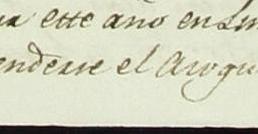 este año en Lim
enderse el Arogu